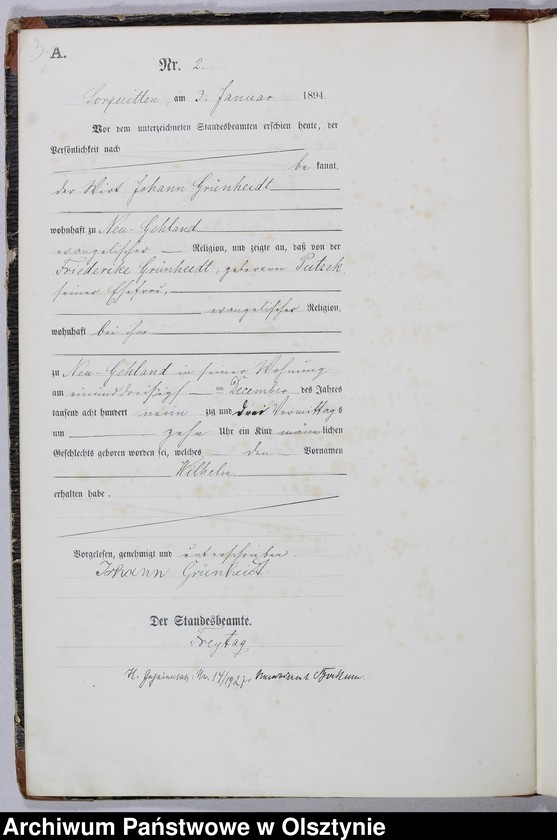 3.
A.
Nr. 2.
Sorquitten, am 3. Januar 1894.
Vor dem unterzeichneten Standesbeamten erschien heute, der
Persönlichkeit nach
be kannt,
der Wirt Johann Grünheidt
wohnhaft zu Neu-Gehland
evangelischer Religion, und zeigte an, daß von der
Friederike Grünheidt, geborenen Putzek
seiner Ehefrau,
evangelischer Religion,
wohnhaft bei ihm
zu Neu-Gehland in seiner Wohnung
am einunddreißigsten December des Jahres
tausend acht hundert neun zig und drei Vormittags
um zehn Uhr ein Kind männlichen
Geschlechts geboren worden sei, welches den Vornamen
Wilhelm
erhalten habe.
Vorgelesen, genehmigt und unterschrieben.
Johann Grünheidt
Der Standesbeamte.
Freytag
Nr. 14/1927
Archiwum Państwowe w Olsztynie